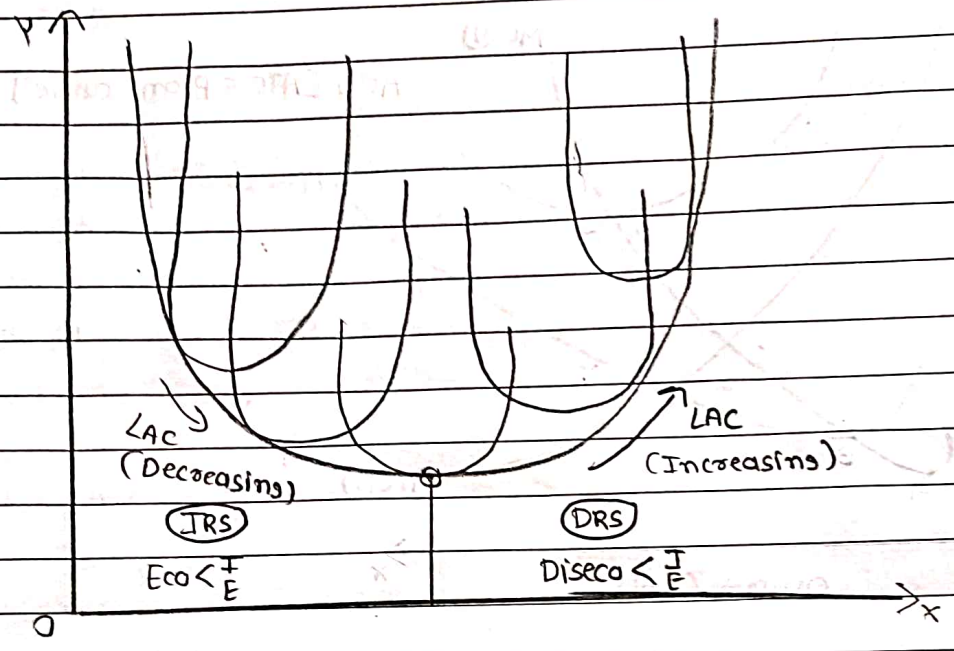 Y
LAC
(Decreasing)
LAC
(Increasing)
IRS
DRS
Eco < I
E
Diseco < I
E
O
X